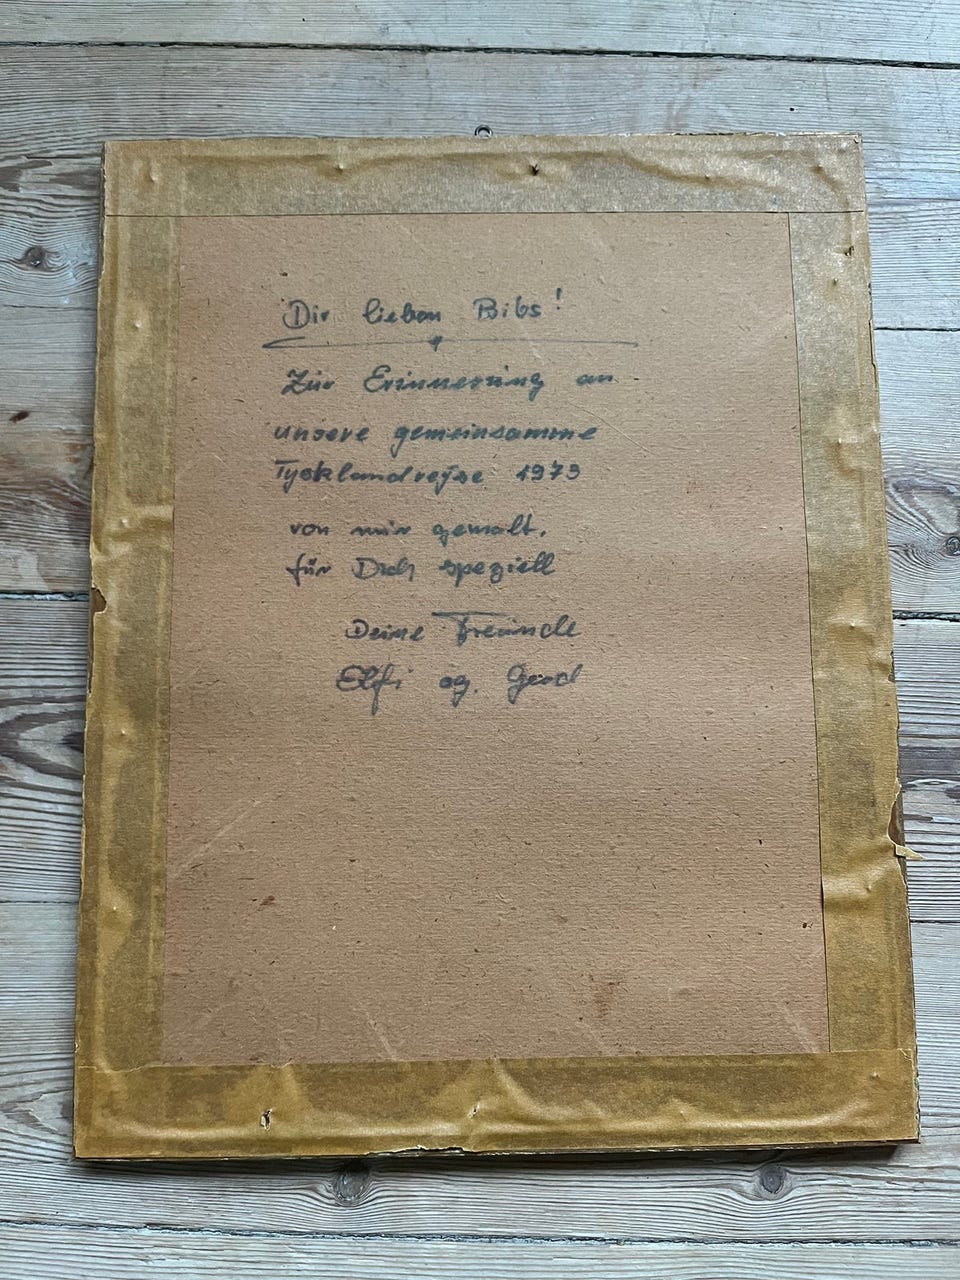 Dir lieben Bibs!
Zur Erinnerung an
unsere gemeinsamme
Tysklandreyse 1973
von mir gemalt.
für Dich speziell
Deine Freunde
Elfi og.